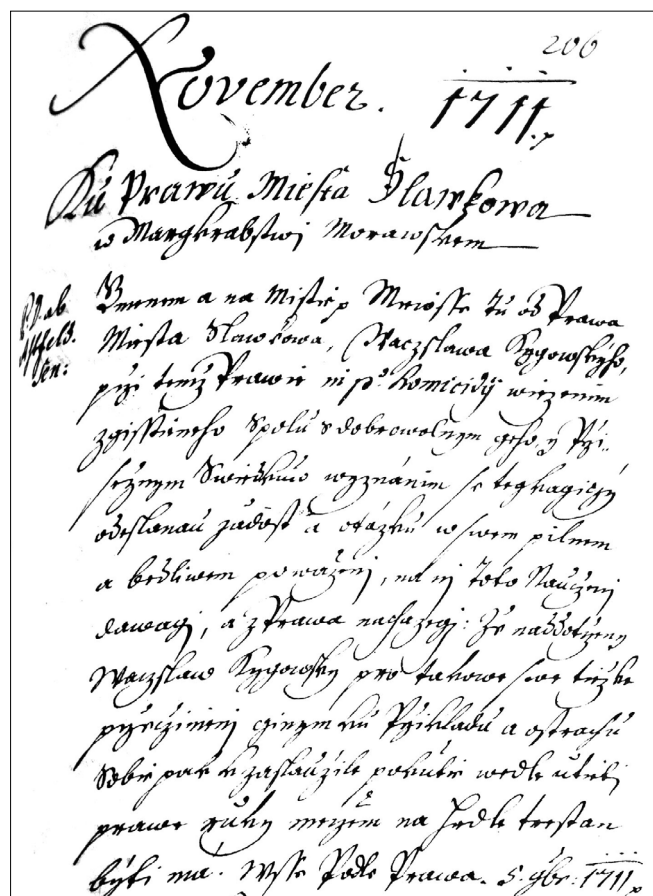 206
November. 1711.
Ku Prawu Miesta Slawkowa
w Margkrabstwj Morawskem
Purgm. a na Mistie p. Mniosse tu od Prawa
Miesta Slawkowa, Waczslawa Kygowskyho,
pży temż Prawie in pto homicidÿ wiezenim
zgisstieneho spolu s dobrowolnym geho, y Pży-
seznym Swiedkuw wyznánim se tegkagiczy
odeslanau żádost a otázku w swem pilnem
a bedliwem powáżenj, na nj toto Nauczenj
dawagj, a z Prawa nachazegj: Że naddotczeny
Waczslaw Kygowsky pro takowe swe tieżke
pżecżinienj ginym ku Pżikladu a ostrachu
Sobie pak k zaslaużile pokutie wedle utieti
prawe ruky meczem na Hrdle trestan
byti ma. Wsse Podle Prawa. 5. 9br: 1711